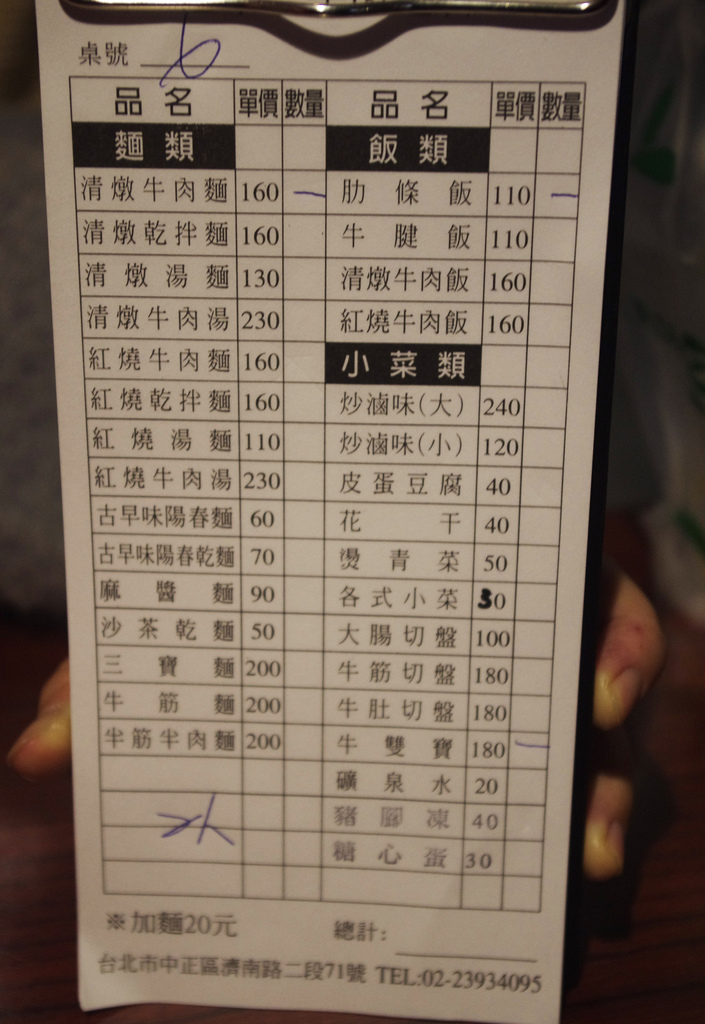 桌號 6
品名 單價 數量 品名 單價 數量
麵類 飯類
清燉牛肉麵 160 一 肋條飯 110 一
清燉乾拌麵 160 牛腱飯 110
清燉湯麵 130 清燉牛肉飯 160
清燉牛肉湯 230 紅燒牛肉飯 160
紅燒牛肉麵 160 小菜類
紅燒乾拌麵 160 炒滷味(大) 240
紅燒湯麵 110 炒滷味(小) 120
紅燒牛肉湯 230 皮蛋豆腐 40
古早味陽春麵 60 花干 40
古早味陽春乾麵 70 燙青菜 50
麻醬麵 90 各式小菜 30
沙茶乾麵 50 大腸切盤 100
三寶麵 200 牛筋切盤 180
牛筋麵 200 牛肚切盤 180
半筋半肉麵 200 牛雙寶 180 一
礦泉水 20
豬腳凍 40
糖心蛋 30
※加麵20元 總計:
台北市中正區濟南路二段71號 TEL:02-23934095